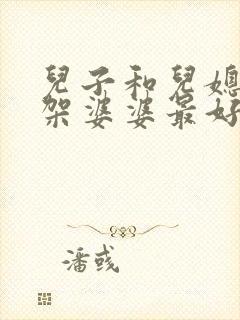 兒子和兒媳
架婆婆最好
潘彧